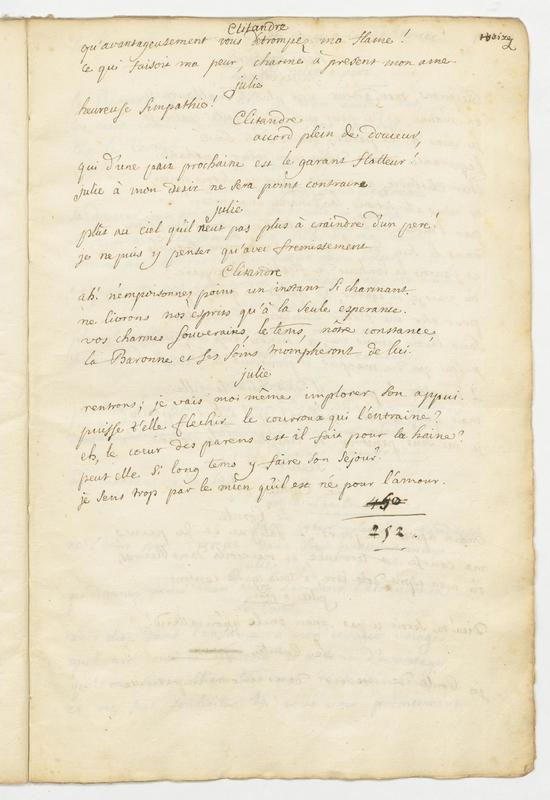 Clitandre
qu'avantageusement vous détrompez ma flame!
ce qui faisoit ma peur, charme à present mon ame
julie
heureuse simpathie!
Clitandre
accord plein de douceur,
qui d'une paix prochaine est le garant flatteur!
julie à mon desir ne sera point contraire
julie
plût au ciel qu'il n'eut pas plus à craindre d'un pere!
je ne puis y penser qu'avec fremissement
Clitandre
ah! n'empoisonnez point un instant si charmant.
ne livrons nos esprits qu'à la seule esperance.
vos charmes souverains, le tems, nôtre constance,
la Baronne et ses soins triompheront de lui.
julie
rentrons; je vais moi même implorer son appui.
puisse t'elle flechir le courroux qui l'entraine?
eh, le cœur des parens est il fait pour la haine?
peut elle si long tems y faire son sejour?
je sens trop par le mien qu'il est né pour l'amour.
450
252